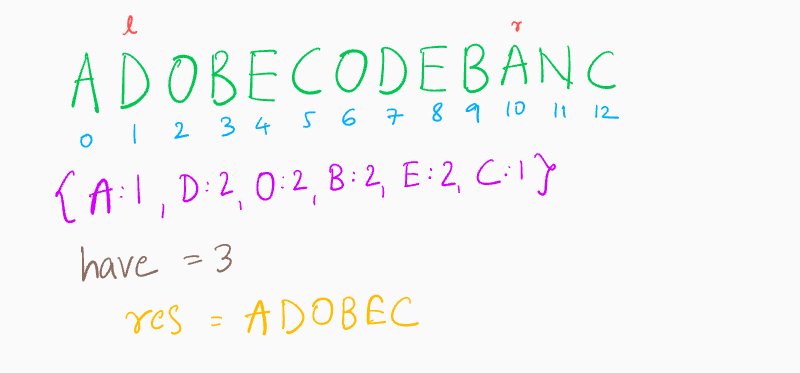 l r
ADOBECODEBANC
0 1 2 3 4 5 6 7 8 9 10 11 12
{A:1, D:2, O:2, B:2, E:2, C:1}
have = 3
res = ADOBEC